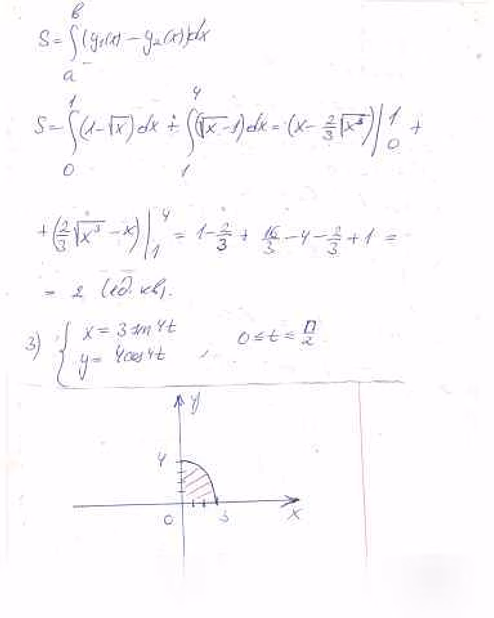 S = ∫ₐᵇ (y₁(x) − y₂(x)) dx
S = ∫₀¹ (1 − √x) dx + ∫₁⁴ (√x − 1) dx = (x − 2/3 √x³) |₀¹ +
+ (2/3 √x³ − x) |₁⁴ = 1 − 2/3 + 16/3 − 4 − 2/3 + 1 =
= 2 (ед. кв).
3) { x = 3 sin 4t
y = 4 cos 4t , 0 ≤ t ≤ П/2
y
4
0 3 x